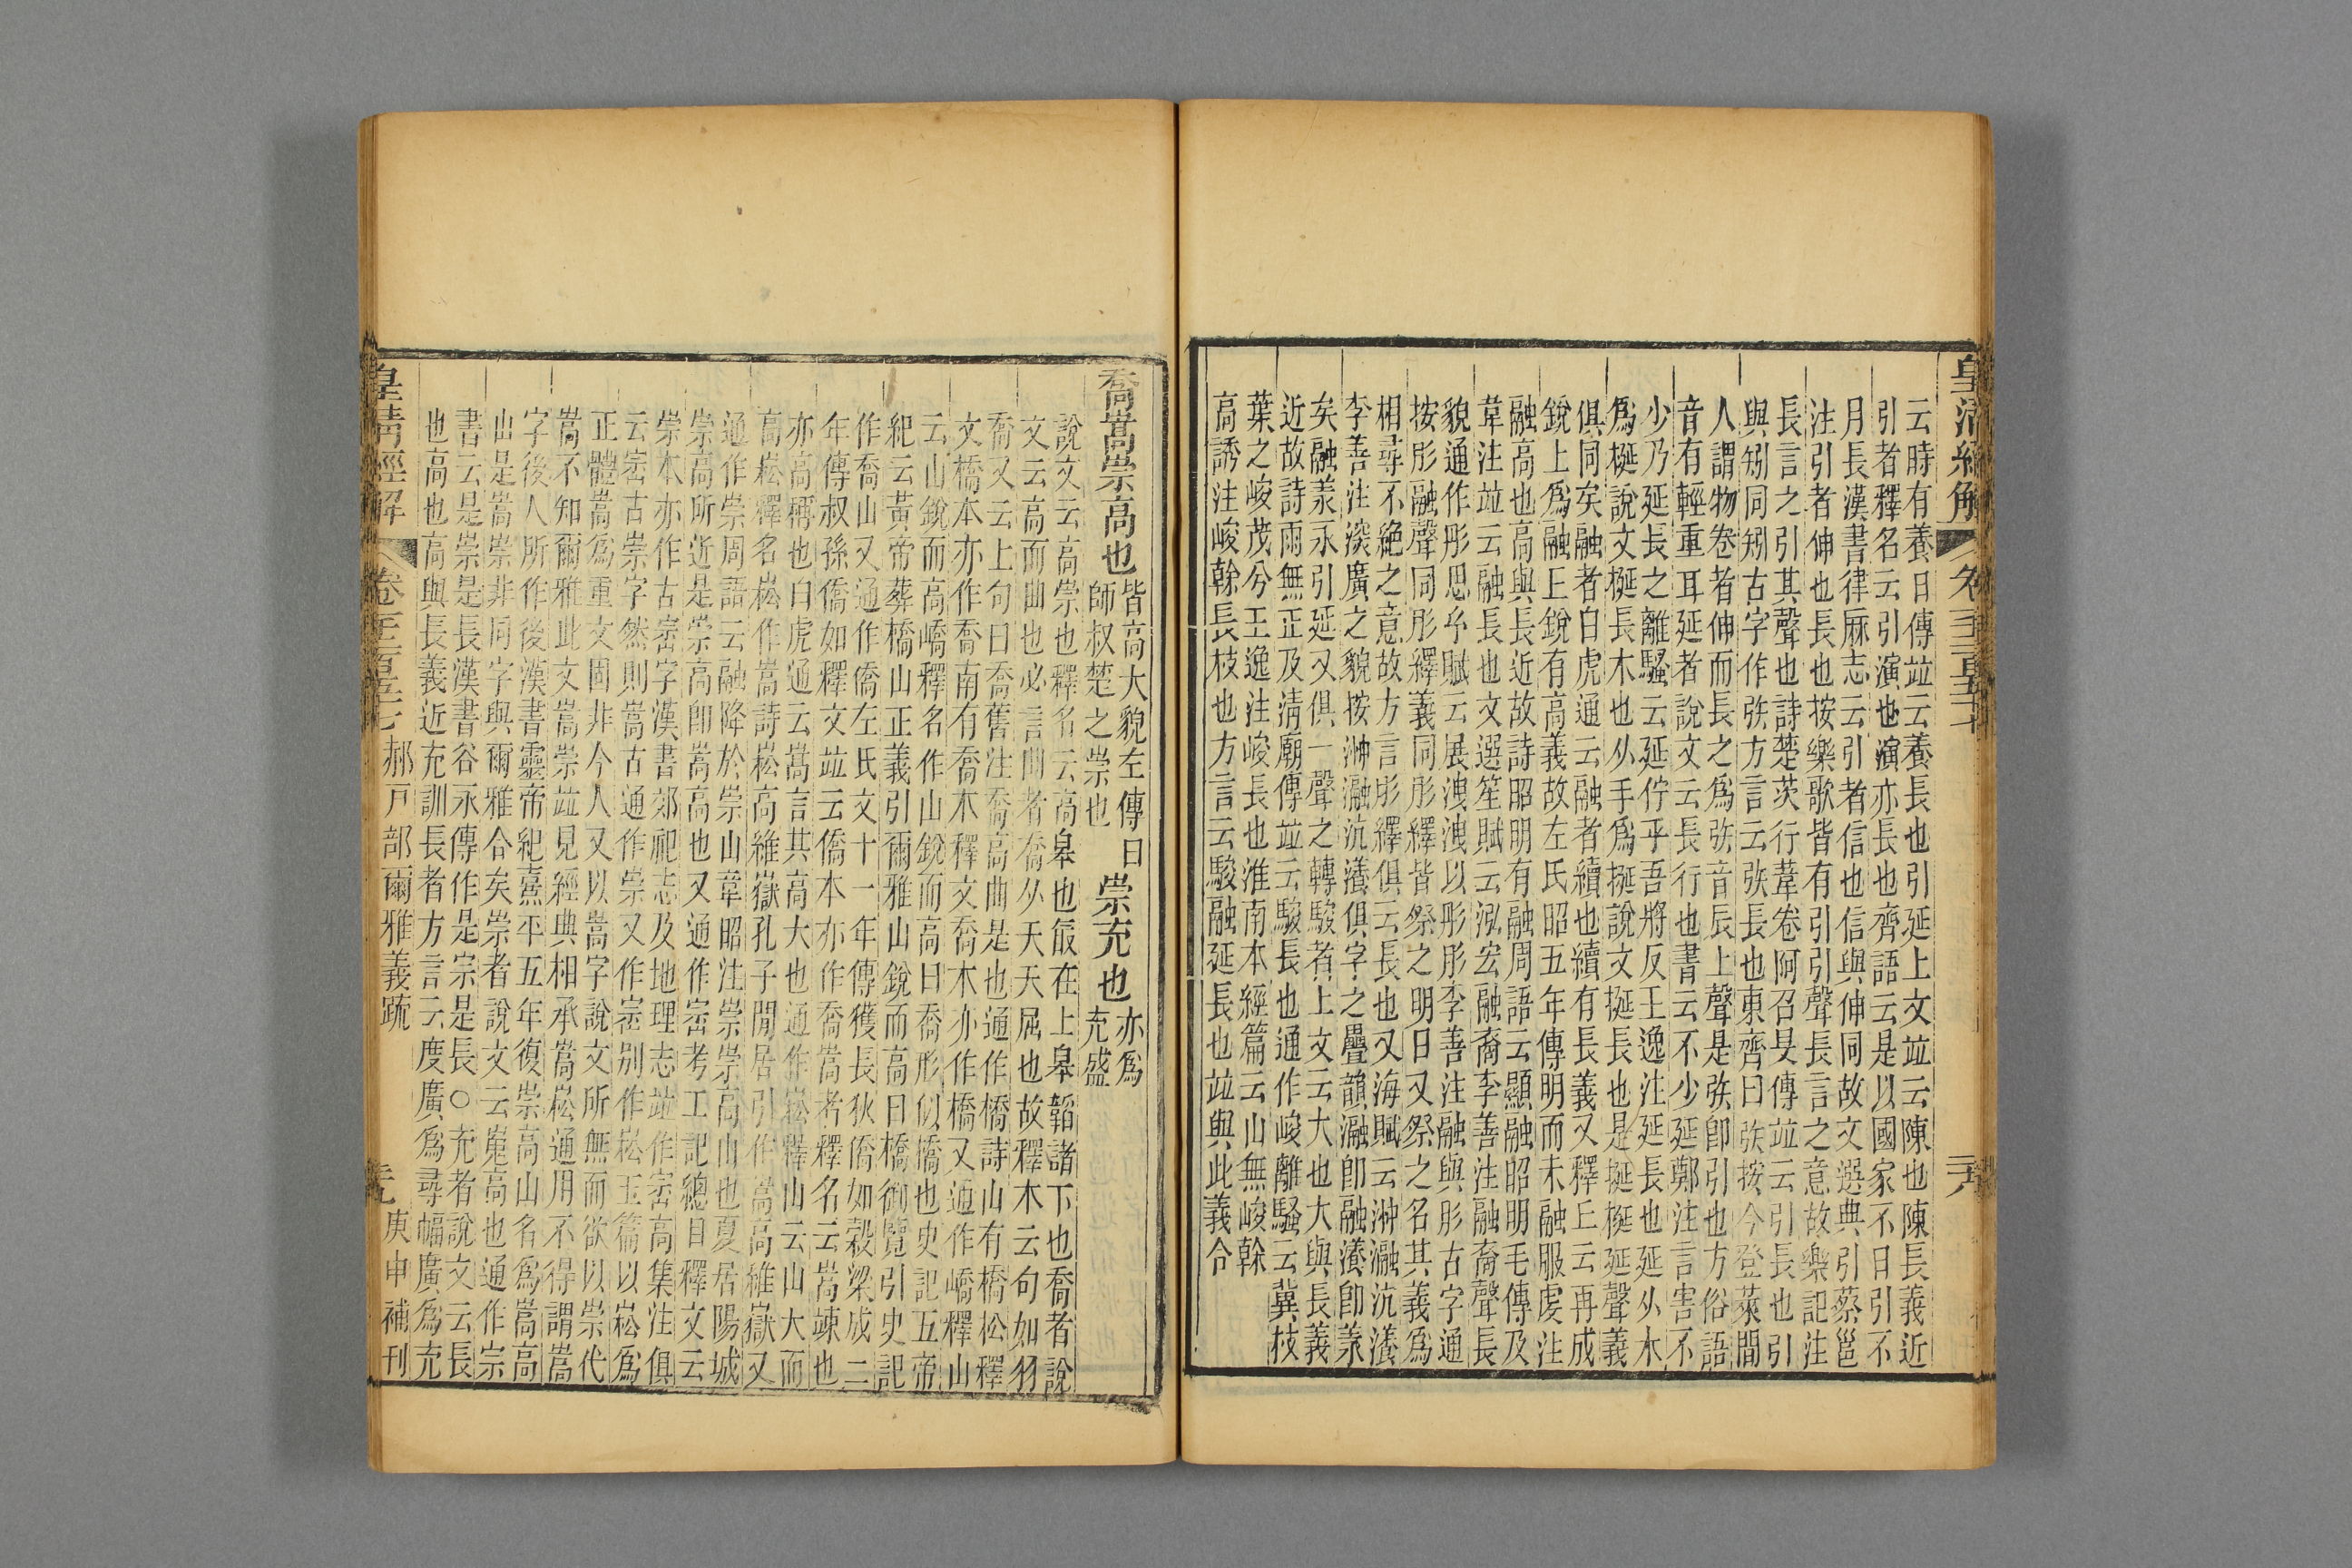 皇清經解
云時有養日傳竝云養長也引延上文竝云陳也陳長義近
引者釋名云引演也演亦長也齊語云是以國家不日引不
月長漢書律厤志云引者信也信與伸同故文選典引蔡邕
注引者伸也長也按樂歌皆有引引聲長言之意故樂記注
長言之引其聲也詩楚茨行葦卷阿召旻傳竝云引長也引
與矧同矧古字作弞方言云弞長也東齊曰弞按今登萊閒
人謂物卷者伸而長之爲弥音辰上聲是弞卽引也方俗語
音有輕重耳延者說文云長行也書云不少延鄭注言害不
少乃延長之離騷云延佇乎吾將反王逸注延長也延从木
爲梴說文梴長木也从手爲挻說文挻長也是挻梴延聲義
俱同矣融者白虎通云融者續也續有長義又釋丘云再成
銳上爲融丘銳有高義故左氏昭五年傳明而未融服虔注
融高也高與長近故詩昭明有融周語云顯融昭明毛傳及
韋注竝云融長也文選笙賦云泓宏融裔李善注融裔聲長
貌通作肜思玄賦云展洩洩以肜肜李善注融與肜古字通
按肜融聲同肜繹義同肜繹皆祭之明日又祭之名其義爲
相尋不絕之意故方言肜繹俱云長也又海賦云浺瀜沆瀁
李善注深廣之貌按浺瀜沆瀁俱字之疊韻瀜卽融瀁卽羕
矣融羕永引延又俱一聲之轉駿者上文云大也大與長義
近故詩雨無正及淸廟傳竝云駿長也通作峻離騷云冀枝
葉之峻茂兮王逸注峻長也淮南本經篇云山無峻榦
高誘注峻榦長枝也方言云駿融延長也竝與此義合
喬嵩崇高也皆高大貌左傳曰師叔楚之崇也崇充也亦爲充盛
說文云高崇也釋名云高皋也皈在上皋韜諸下也喬者說
文云高而曲也必言曲者喬从夭夭屈也故釋木云句如羽
喬又云上句曰喬舊注喬高曲是也通作橋詩山有橋松釋
文橋本亦作喬南有喬木釋文喬木亦作橋又通作嶠釋山
云山銳而高嶠釋名作山銳而高曰喬形似橋也史記五帝
紀云黃帝葬橋山正義引爾雅山銳而高曰橋御覽引史記
作喬山又通作僑左氏文十一年傳獲長狄僑如穀梁成二
年傳叔孫僑如釋文竝云僑本亦作喬嵩者釋名云嵩竦也
亦高稱也白虎通云嵩言其高大也通作崧釋山云山大而
高崧釋名崧作嵩詩崧高維嶽孔子閒居引作嵩高維嶽又
通作崇周語云融降於崇山韋昭注崇崇高山也夏居陽城
崇高所近是崇高卽嵩高也又通作崈考工記總目釋文云
崇本亦作古崈字漢書郊祀志及地理志竝作崈高集注俱
云崈古崇字然則嵩古通作崇又作崈別作崧玉篇以崧爲
正體嵩爲重文固非今人又以嵩字說文所無而欲以崇代
嵩不知爾雅此文嵩崇竝見經典相承嵩崧通用不得謂嵩
字後人所作後漢書靈帝紀熹平五年復崇高山名爲嵩高
山是嵩崇非同字與爾雅合矣崇者說文云嵬高也通作宗
書云是崇是長漢書谷永傳作是宗是長○充者說文云長
也高也高與長義近充訓長者方言云度廣爲尋幅廣爲充
皇清經解 郝戶部爾雅義疏 庚申補刊